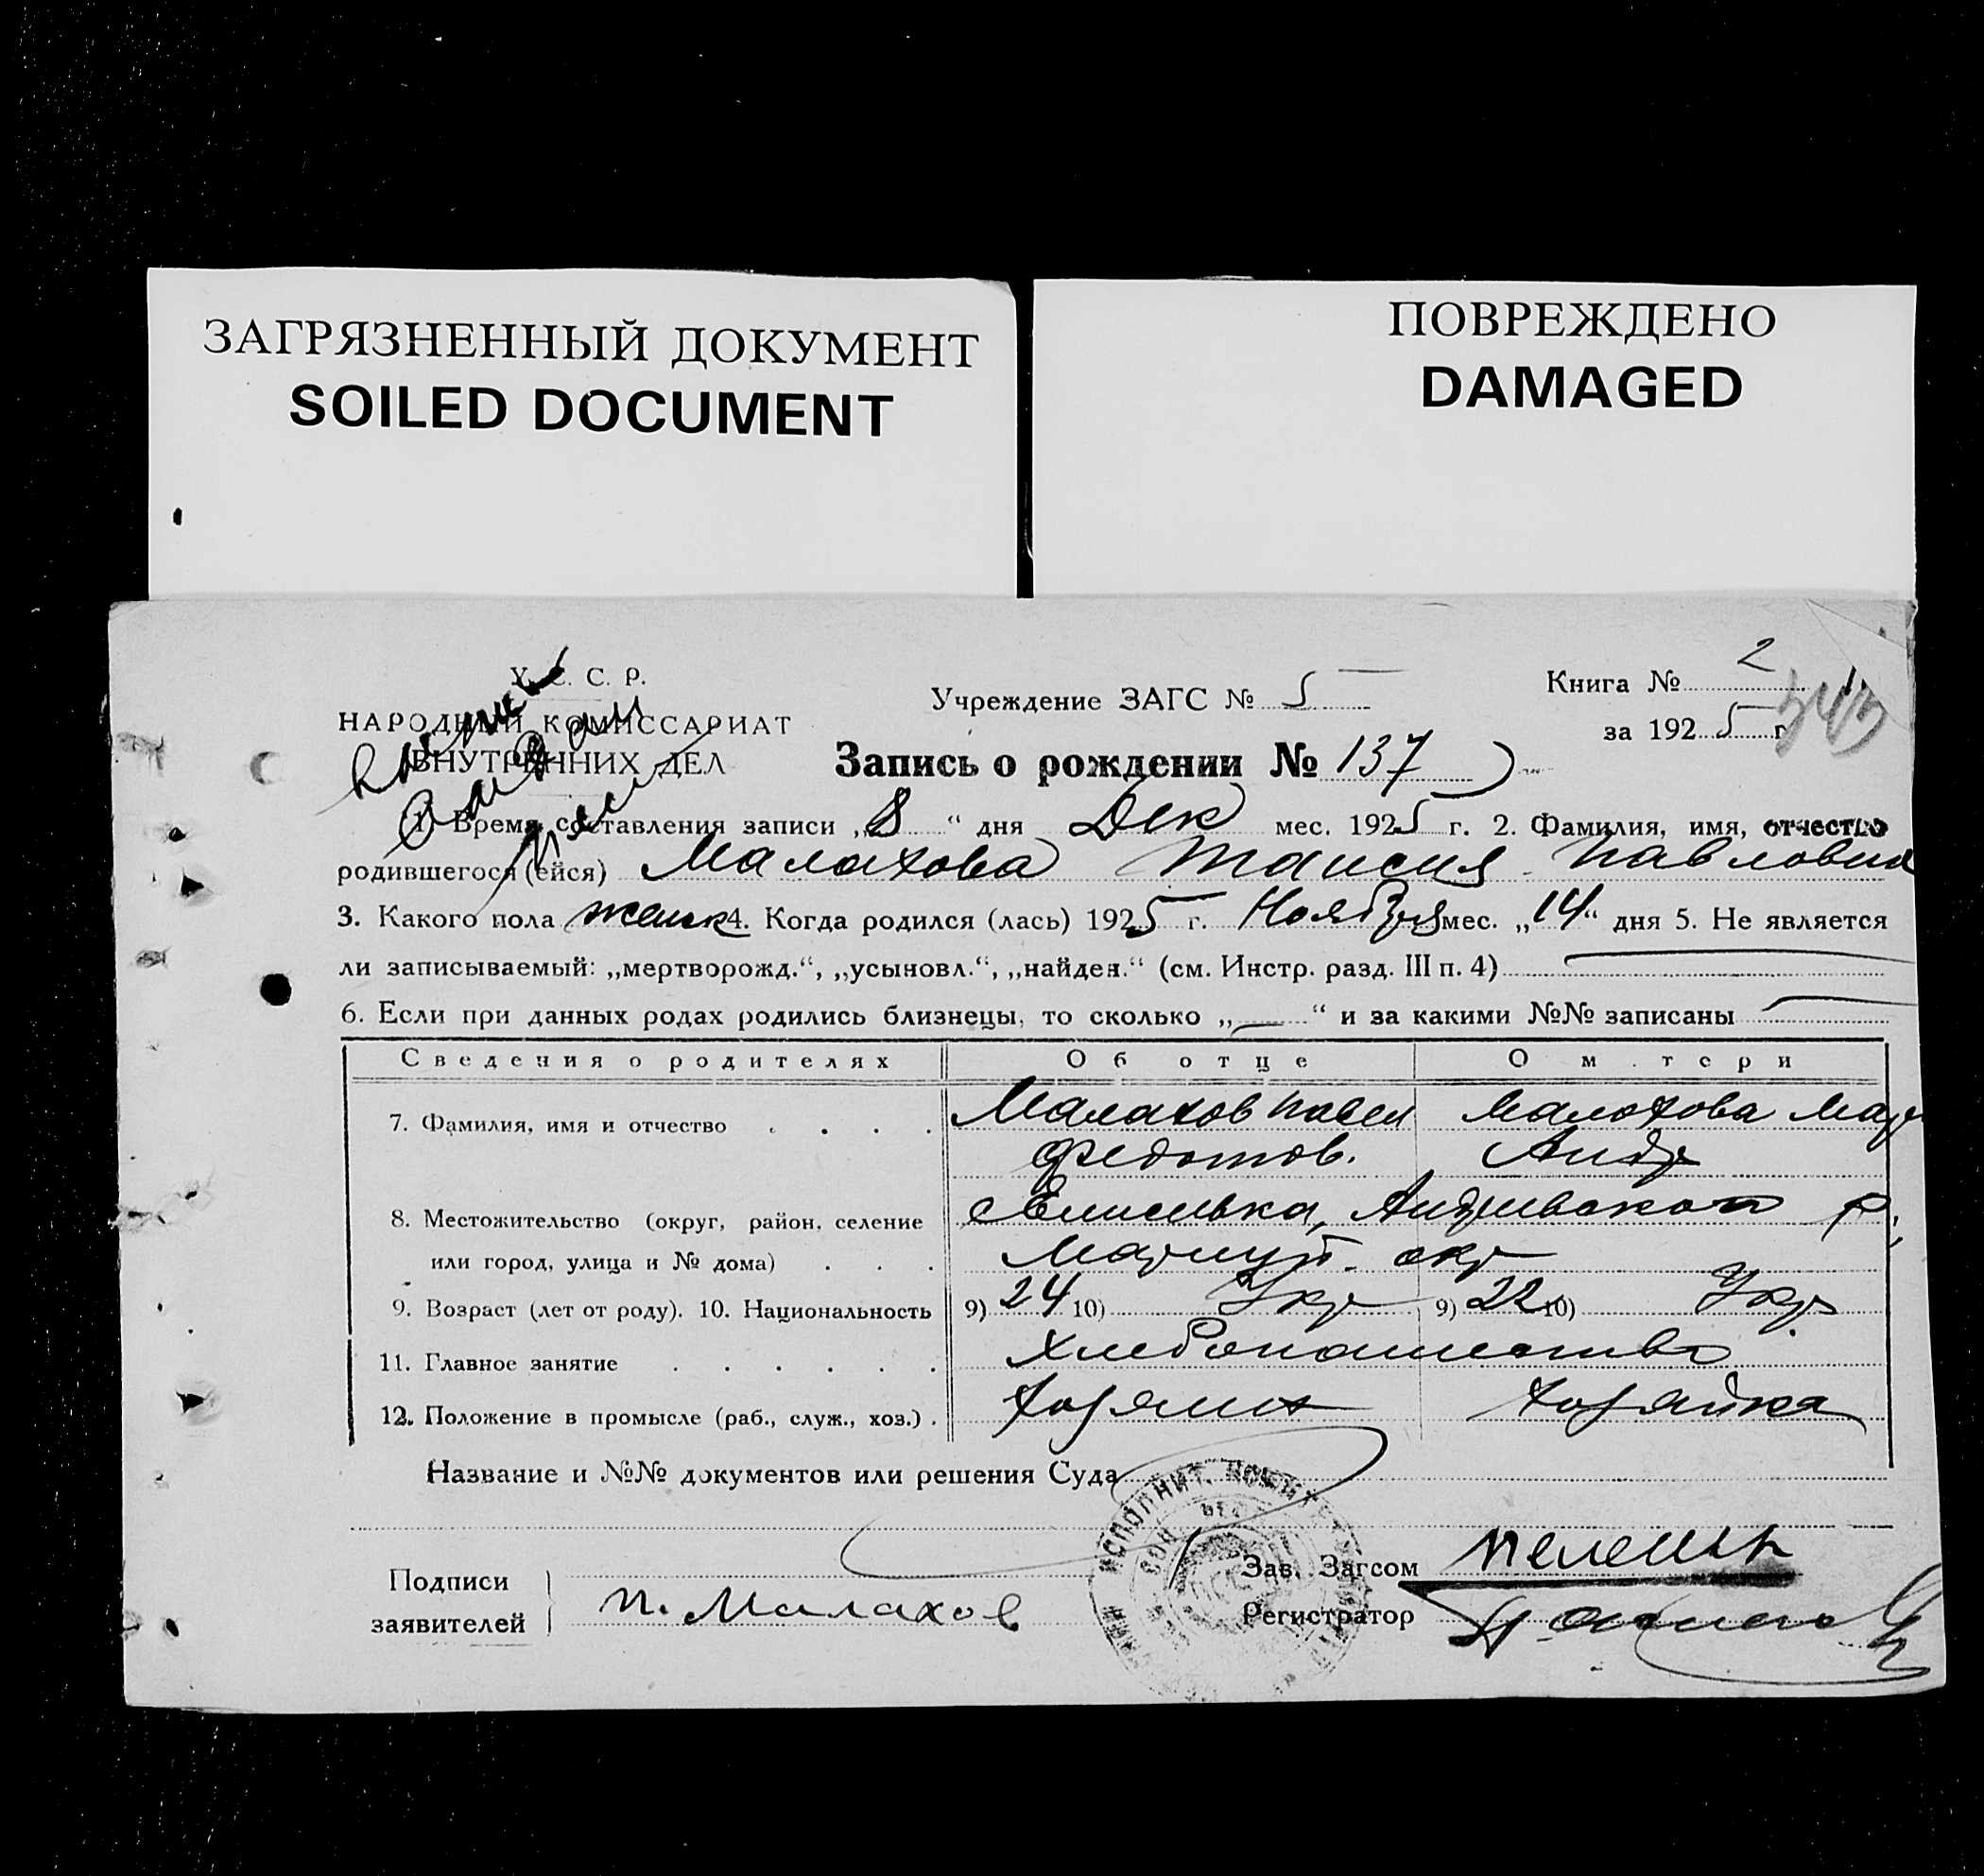 ЗАГРЯЗНЕННЫЙ ДОКУМЕНТ
SOILED DOCUMENT
ПОВРЕЖДЕНО
DAMAGED
У. С. С. Р.
НАРОДНЫЙ КОМИССАРИАТ
ВНУТРЕННИХ ДЕЛ
Учреждение ЗАГС № 5
Книга № 2
за 1925 г.
Запись о рождении № 137
1. Время составления записи „8“ дня Дек мес. 1925 г. 2. Фамилия, имя, отчество
родившегося (ейся) Малахова Таисия Павловна
3. Какого пола женск 4. Когда родился (лась) 1925 г. Ноября мес. „14“ дня 5. Не является
ли записываемый: „мертворожд.“, „усыновл.“, „найден.“ (см. Инстр. разд. III п. 4)
6. Если при данных родах родились близнецы, то сколько „—“ и за какими №№ записаны
Сведения о родителях Об отце О м тери
7. Фамилия, имя и отчество Малахов Павел Малахова Мар
Федотов. Андр
8. Местожительство (округ, район, селение Андреевского р,
или город, улица и № дома) Мариуп. окр
9. Возраст (лет от роду). 10. Национальность 9) 24 10) Укр 9) 22 10) Укр
11. Главное занятие Хлебопашество
12. Положение в промысле (раб., служ., хоз.) Хозяин Хозяйка
Название и №№ документов или решения Суда
Подписи
заявителей П. Малахов
Зав. Загсом
Регистратор
ИСПОЛНИТ.